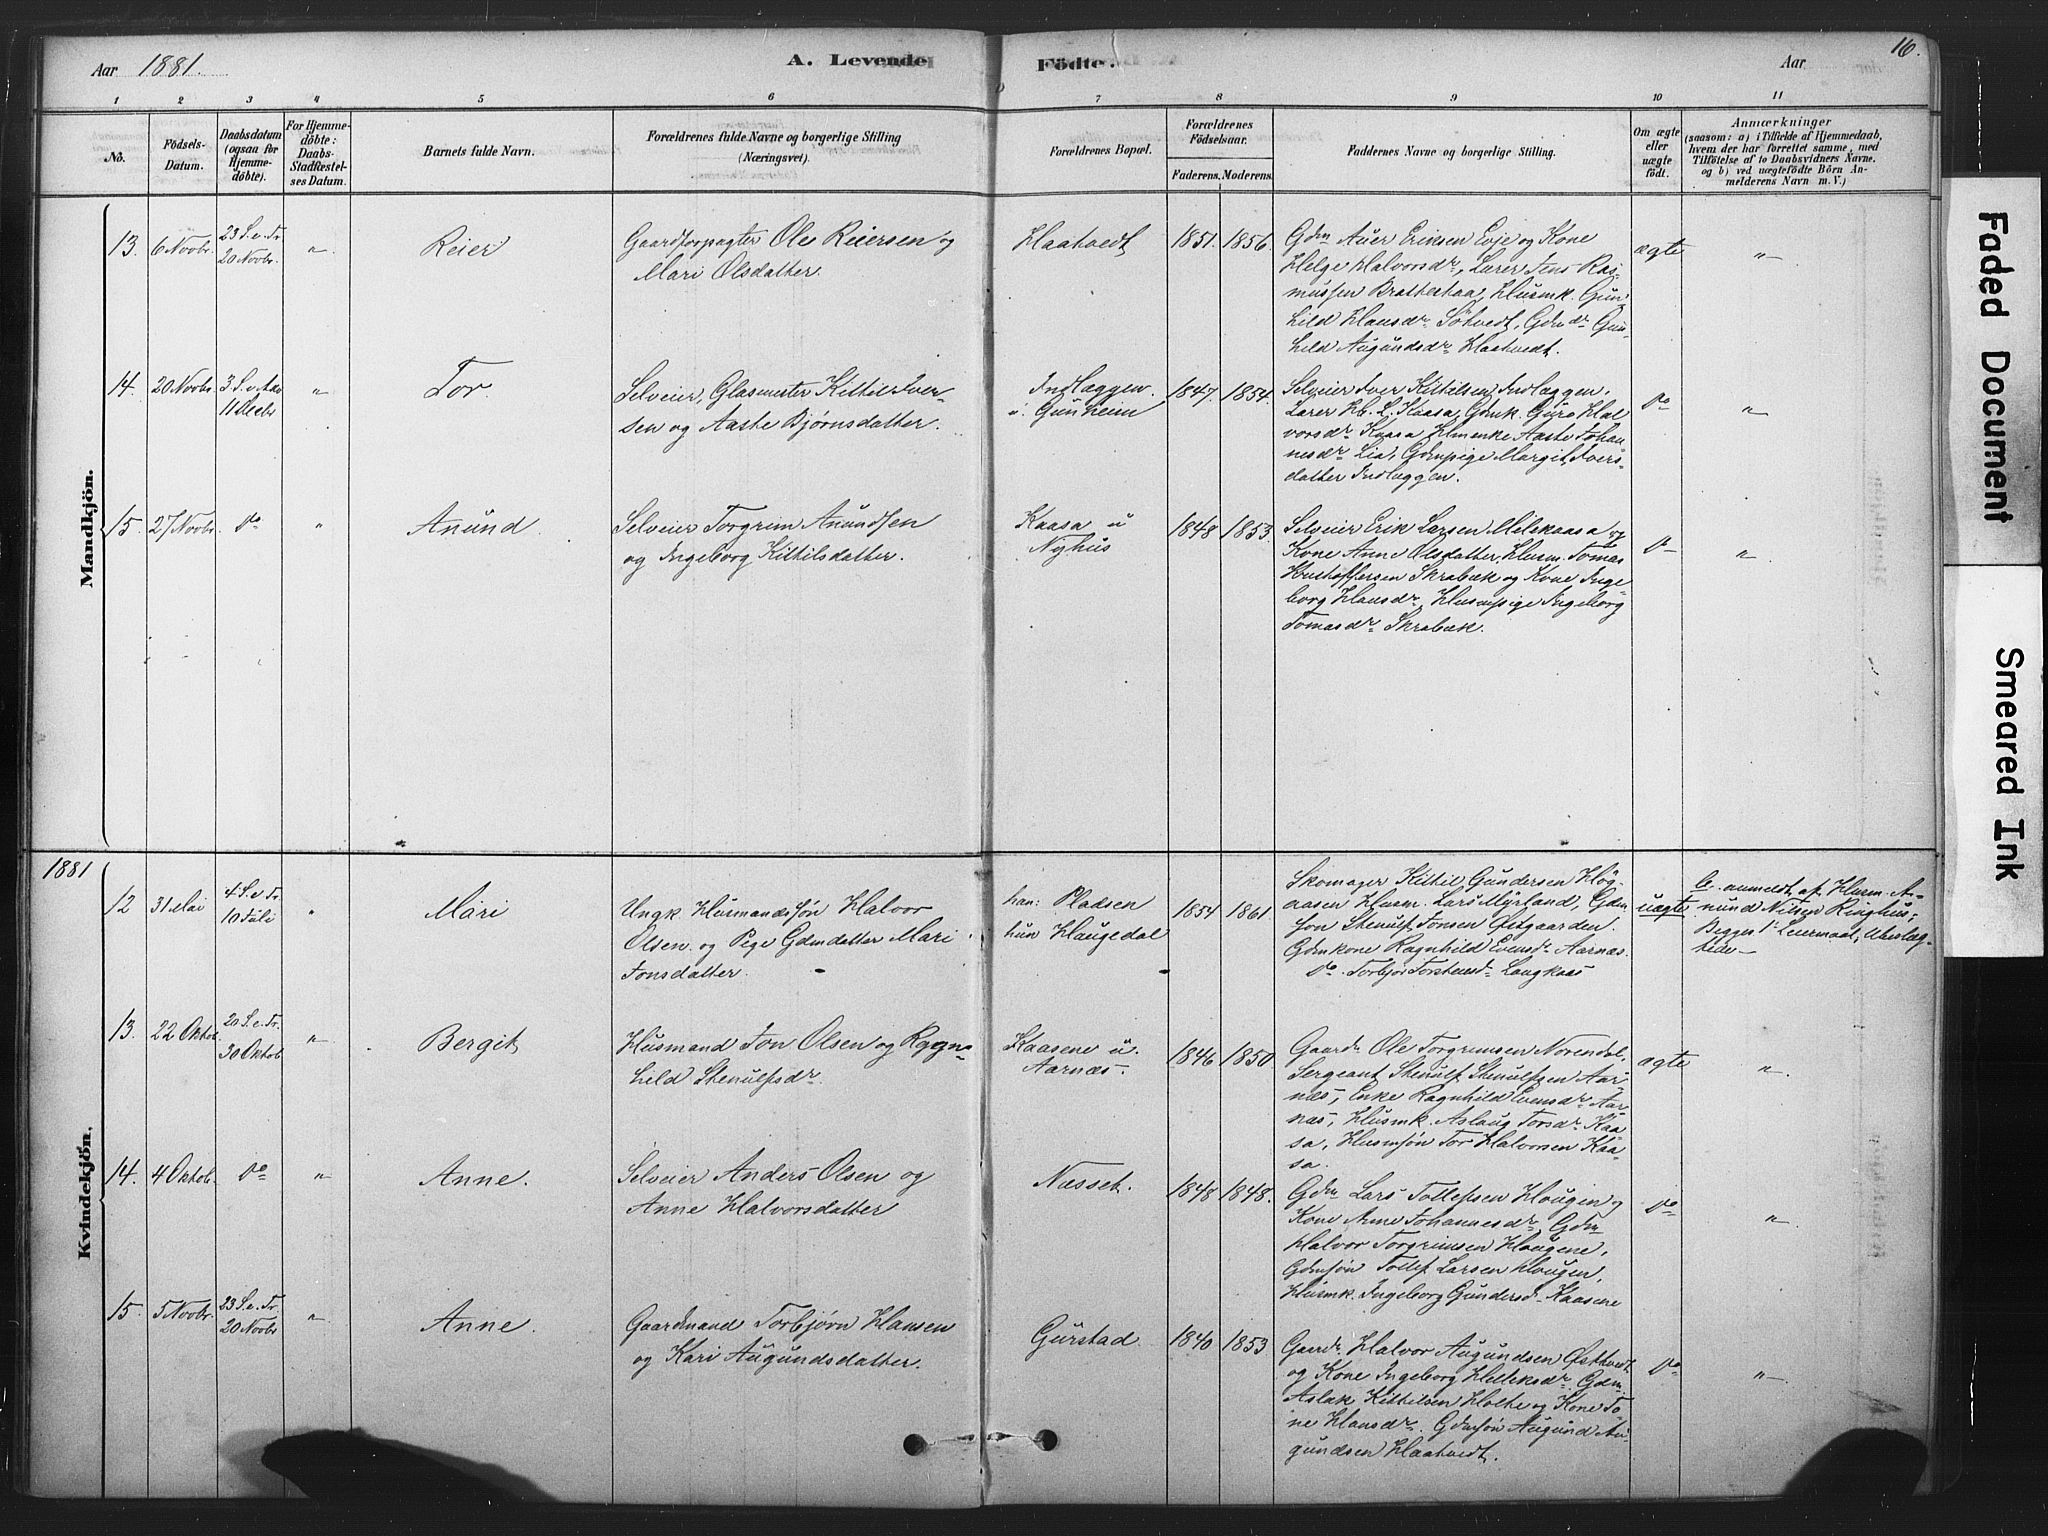 Aar 1881.
A. Levende Födte.
Aar
16.
1 2 3 4 5 6 7 8 9 10 11
No.
Födsels-
Datum.
Daabsdatum
(ogsaa for
Hjemme-
döbte).
For Hjemme-
döbte:
Daabs-
Stadfæstel-
ses Datum.
Barnets fulde Navn.
Forældrenes fulde Navne og borgerlige Stilling
(Næringsvei).
Forældrenes Bopæl.
Forældrenes
Födselsaar.
Faderens. Moderens.
Faddernes Navne og borgerlige Stilling.
Om ægte
eller
uægte
födt.
Anmærkninger
(saasom: a) i Tilfælde af Hjemmedaab,
hvem der har forrettet samme, med
Tilföielse af to Daabsvidners Navne.
og b) ved uægtefödte Börn An-
melderens Navn m. V.)
Mandkjön.
13. 6 Novbr.
23 S. e. Tr.
20 Novbr.
"
Reier
Gaardforpagter Ole Reiersen og
Mari Olsdatter.
Haatvedt
1851. 1856.
Gdm Auer Eriksen Evje og Kone
Helge Halvorsdr, Lærer Jens Ras-
mussen Brattestaa, Husmk. Gun-
hild Hansdr Sötvedt, Gdmdr Gun-
hild Augundsdr Haatvedt.
ægte
"
14. 20 Novbr.
3 S. i Adv
11 Decbr
"
Tor
Selveier, Glasmester Kittil Iver-
sen og Aaste Bjørnsdatter.
Indlæggen
u. Gunheim
1847. 1854.
Selveier Iver Kittilsen Indlæggen,
Lærer H. L. Kaasa, Gdmk. Guro Hal-
vorsdr Kaasa, Hmenke Aaste Johan-
nesdr Lia, Gdmpige Margit Ivers-
datter Indlæggen.
Do
"
15. 27 Novbr.
Do
"
Anund
Selveier Torgrim Anundsen
og Ingeborg Kittilsdatter.
Kaasa u
Nyhus
1848 1853.
Selveier Erik Larsen Melekaasa og
Kone Anne Olsdatter, Husm. Tomas
Kristoffersen Skrabæk og Kone Inge-
borg Hansdr, Husmpige Ingeborg
Tomasdr Skrabæk.
Do
"
1881
Kvindekjön.
12 31 Mai
4 S. e Tr.
10 Juli
"
Mari
Ungk. Husmandssøn Halvor
Olsen og Pige Gdmdatter Mari
Jonsdatter.
han: Pladsen
hun Haugedal
1854 1861
Skomager Kittil Gundersen Hög-
aasen, Husm. Lars Myrland, Gdm-
søn Stenulf Jonsen Østgaarden.
Gdmkone Ragnhild Evensdr Aarnæs.
Do Torbjør Torstensd. Langkaas
uægte
b. anmeldt af Husm. A-
nund Nilsen Ringhus;
Begges 1ste Leiermaal, Ubeslæg-
tede.
13. 22 Oktob.
20 S. e. Tr.
30 Oktob
"
Bergit
Husmand Jon Olsen og Ragn-
hild Stenulfsdr.
Kaasene u.
Aarnæs.
1846 1850.
Gaardm Ole Torgrimsen Norendal,
Sergeant Stenulf Stenulfsen Aar-
næs, Enke Ragnhild Evensdr Aar-
næs, Husmk. Aslaug Torsdr Kaa-
sa, Husmsøn Tor Halvorsen Kaa-
sa.
ægte
"
14. 4 Oktob.
Do
"
Anne.
Selveier Anders Olsen og
Anne Halvorsdatter
Næsset.
1848. 1848.
Gdm Lars Tollefsen Haugen og
Kone Anne Johannesdr, Gdm
Halvor Torgrimsen Haugene,
Gdmsøn Tollef Larsen Haugen,
Husmk. Ingeborg Gundersd. Kaasene
Do
"
15. 5 Novbr.
23 S. e. Tr.
20 Novbr
"
Anne.
Gaardmand Torbjørn Hansen
og Kari Augundsdatter.
Gurstad.
1840 1853
Gaardm Halvor Augundsen Østtvedt
og Kone Ingeborg Helleksdr, Gdm.
Aslak Kittilsen Holte og Kone To-
ne Hansdr. Gdmsøn Augund Au-
gundsen Haatvedt.
Do
"
Faded Document
Smeared Ink